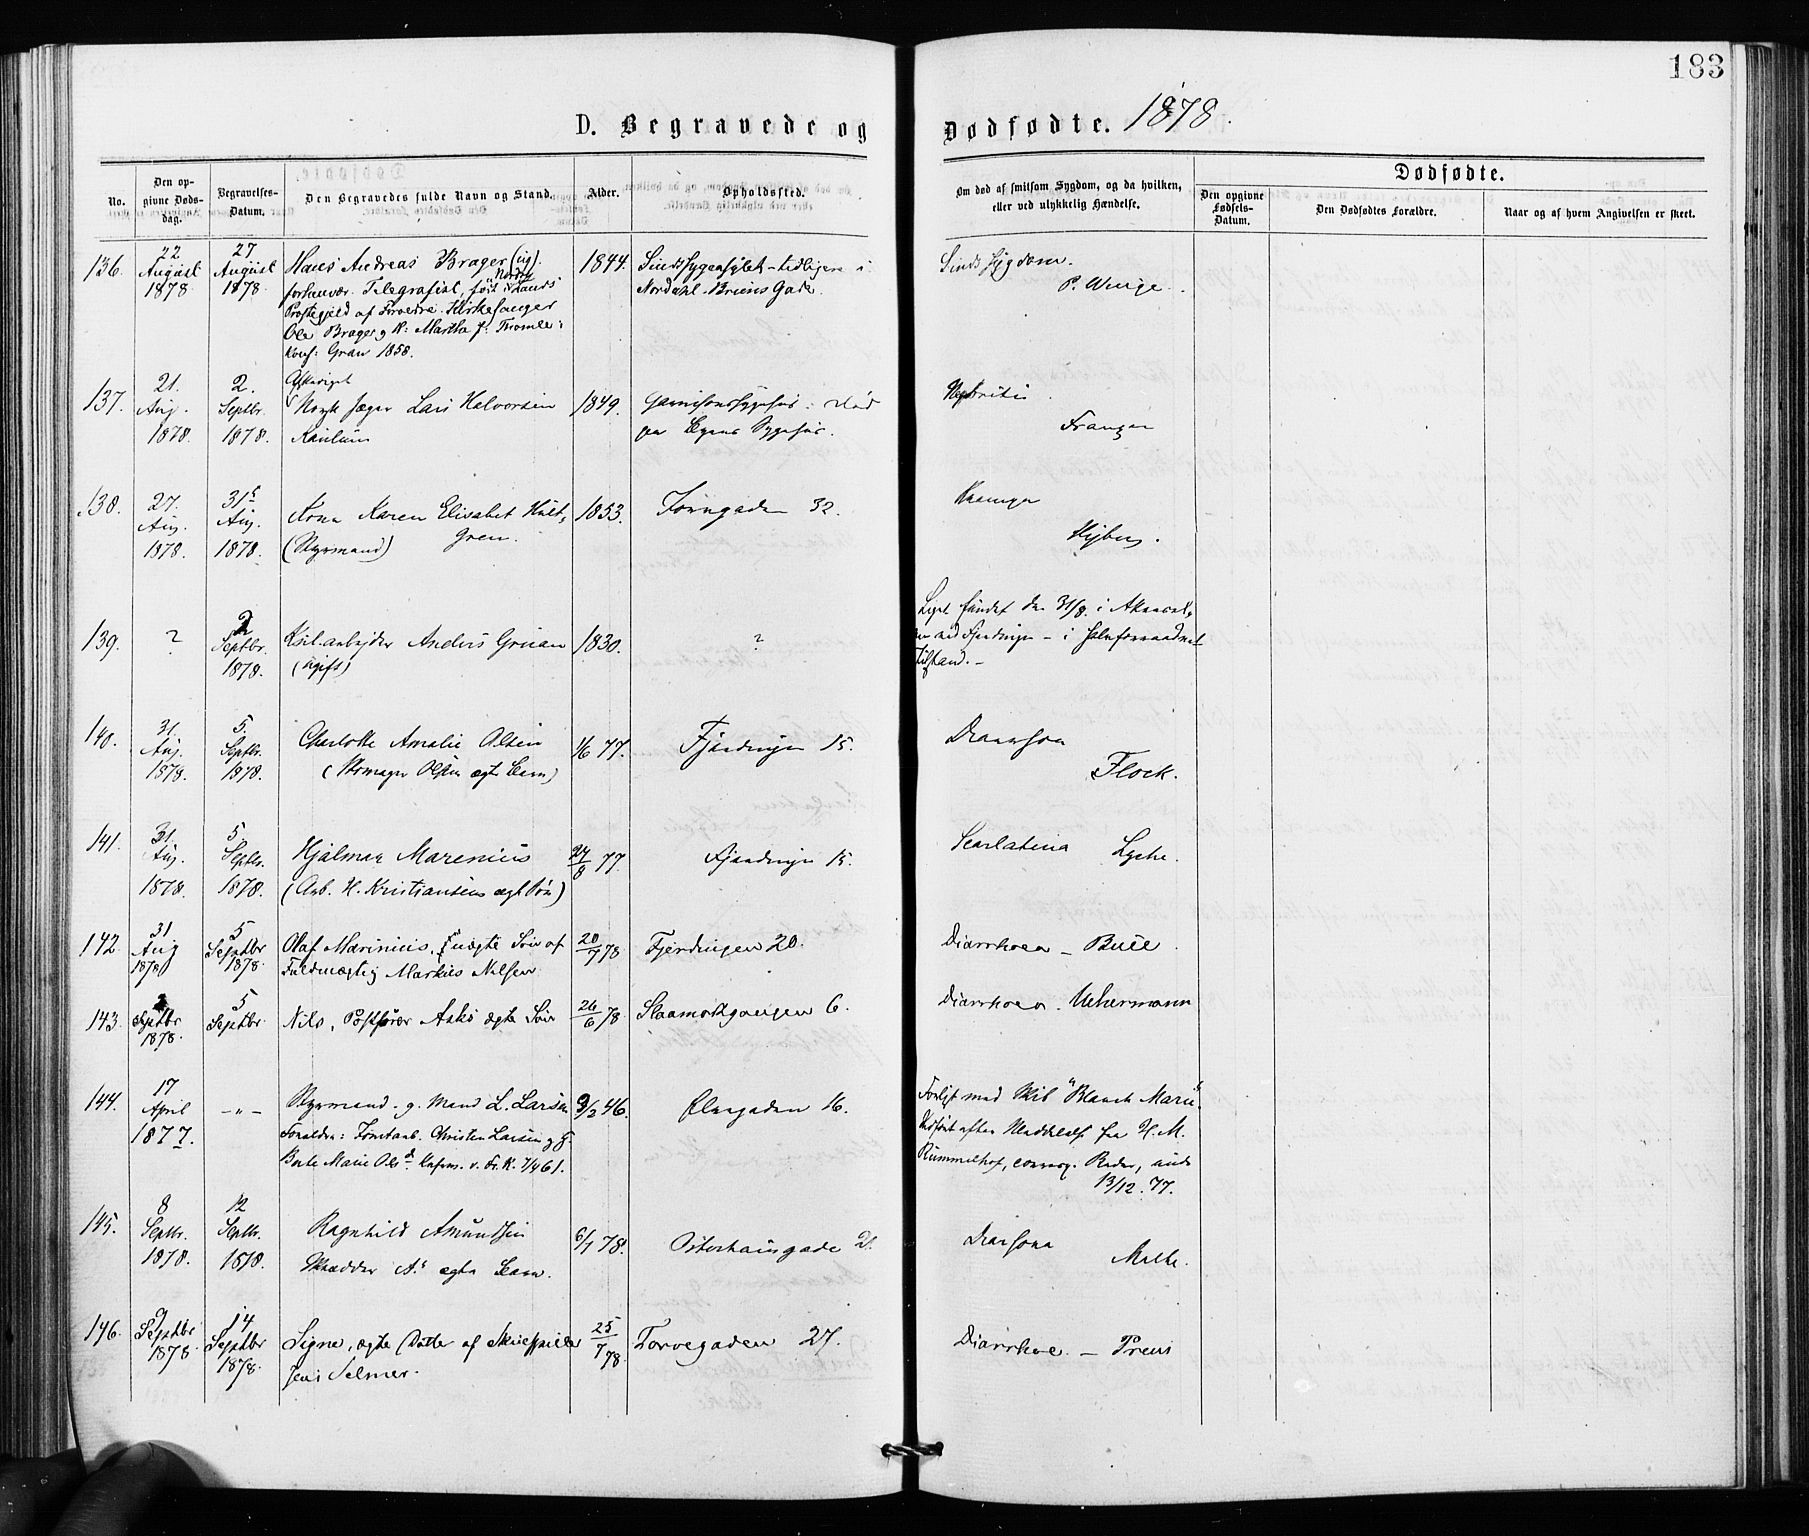 183
D. Begravede og Dødfødte. 1878.
No.
Den opgivne Dødsdag.
Begravelses-Datum.
Den Begravedes fulde Navn og Stand.
Alder.
Opholdssted.
Om død af smitsom Sygdom, og da hvilken, eller ved ulykkelig Hændelse.
Dødfødte.
Den opgivne Fødsels-Datum.
Den Dødfødtes Forældre.
Naar og af hvem Angivelsen er skeet.
136. 22 August 1878 27 August 1878. Hans Andreas Brager (ug). 1844. Sindssygeasylet - tidligere i Sindssygdom.
forhenvær. Telegrafist, født i Nordre Lands Nordahl Bruns Gade. P. Winge.
Præstegjeld af Forældre Kirkesanger
Ole Brager og K: Martha J: Tromle:
Konf: Gran 1858.
137. 21. Aug. 1878. 2. Septbr. 1878. Afskediget
Norsk Jæger Lars Halvorsen 1849. Garnisonssygehus: Nephritis.
138. 27. Aug. 1878. 31 Aug. 1878. Anna Karen Elisabet Hult- 1853. 32.
(Styrmand) gren.
139. ? 2 Septbr. 1878. Anders Gruan 1830. ? Liget fundet den 31/8. i Akerselven
(ugift) ved Fjerdingen - i halvforraadnet
Tilstand. -
140. 31. Aug. 1878. 5. Septbr. 1878. Charlotte Amalie Olsen 1/6 77. Fjerdingen 15. Diarrhoea
(Skomager Olsen ægte Barn) Flock.
141. 31. Aug. 1878. 5. Septbr. 1878. Hjalmar Marenius 24/8 77. Fjerdingen 15. Scarlatina Lyche.
(Arb. H. Kristiansens ægte Søn)
142. 31 Aug 1878 5 Septbr 1878. Olaf Marinius, uægte Søn af 20/7 78 Fjerdingen 20. Diarrhoea - Bull.
Fuldmægtig Markus Nilsen.
143. 2 Septbr 1878. 5 Septbr. Nils, Postfører Asks ægte Søn 26/6 78 Slaamotgangen 6. Diarrhoea. Uchermann
144. 17 April 1877. -"- Styrmand - g. Mand L. Larsen 3/2 46. Elvegaden 16. Forlist med Skib "Blanch Marie"
Forældre: Christen Larsen og
Berte Marie Olsd. Konfirm. v. Fr. K. 7/4 61. Rummelhof, Reder, under
13/12. 77.
145. 8 Septbr. 1878. 12 Septbr. 1878. Ragnhild Amundsen 6/7 78. Østerhausgade 2. Diarhoea
Skrædder A.s ægte Barn. Malthe.
146. 9 Septbr 1878. 14 Septbr 1878. Signe, ægte Datter af Skuespiller 25/7 78. Torvegaden 27. Diarrhoe. - Preus
Jens Selmer.